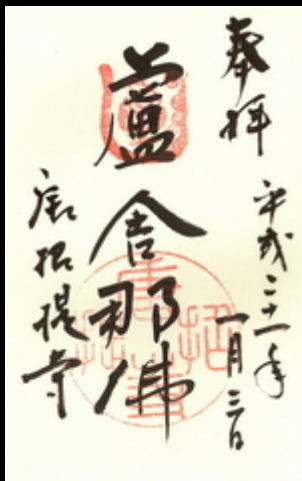 奉拝
平成二十一年
一月三日
盧舎那佛
唐招提寺